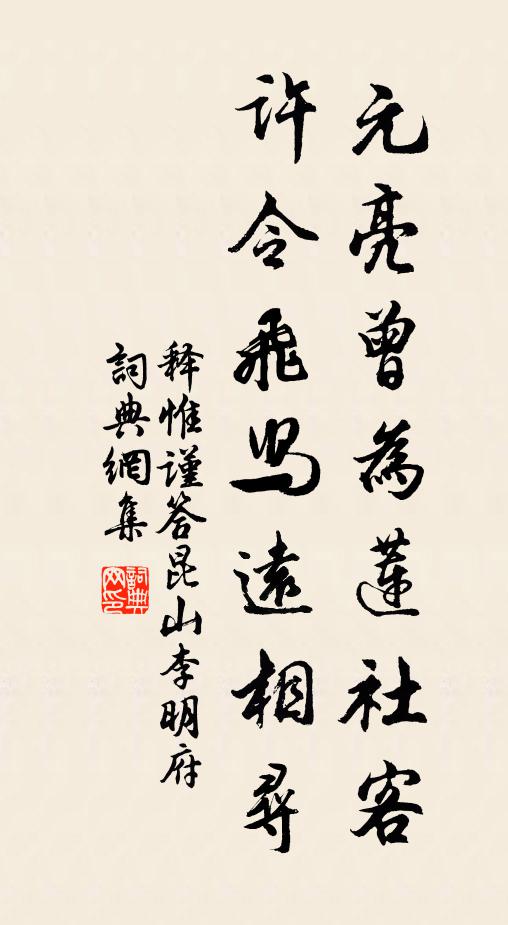 元亮曾為蓮社客
許令飛舄遠相尋
释惟謹答昆山李明府
詞典網集
詞典
网印